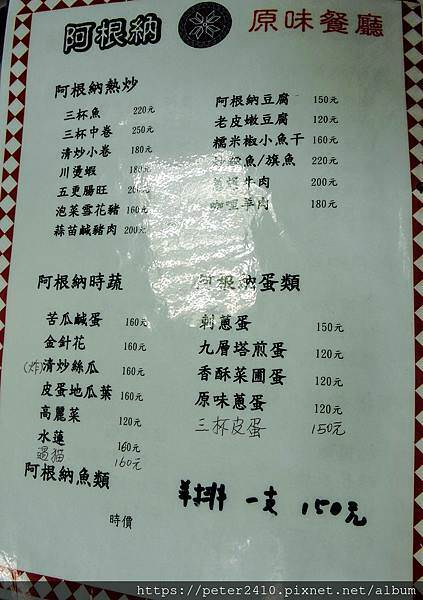 阿根納 原味餐廳
阿根納熱炒
三杯魚 220元
三杯中卷 250元
清炒小卷 180元
川燙蝦 180元
五更腸旺 200元
泡菜雪花豬 160元
蒜苗鹹豬肉 200元
阿根納豆腐 150元
老皮嫩豆腐 120元
糯米椒小魚干 160元
魚/旗魚 220元
牛肉 200元
咖哩羊肉 180元
阿根納時蔬
苦瓜鹹蛋 160元
金針花 160元
(炸)清炒絲瓜 160元
皮蛋地瓜葉 160元
高麗菜 120元
水蓮 160元
過猫 160元
阿根納魚類
時價
阿根納蛋類
刺蔥蛋 150元
九層塔煎蛋 120元
香酥菜圃蛋 120元
原味蔥蛋 120元
三杯皮蛋 150元
羊排 一支 150元
https://peter2410.pixnet.net/album